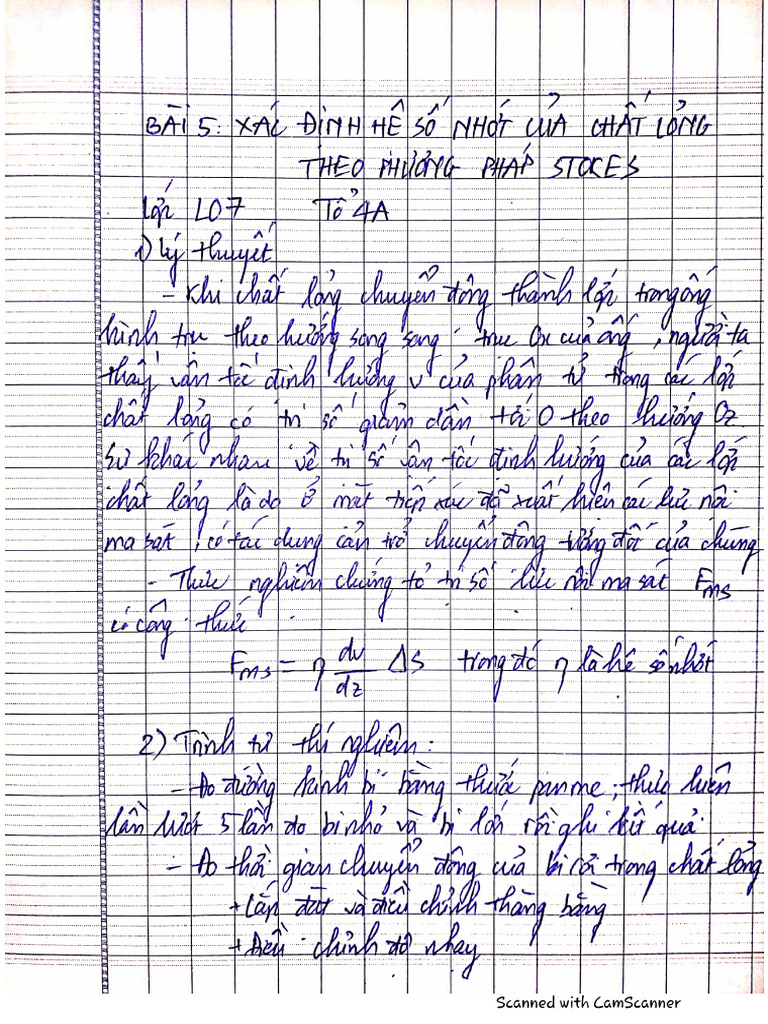 BÀI 5: XÁC ĐỊNH HỆ SỐ NHỚT CỦA CHẤT LỎNG
THEO PHƯƠNG PHÁP STOCES
Lớp L07 Tổ 4A
1) Lý thuyết
- Khi chất lỏng chuyển động thành lớp trong ống
hình trụ theo hướng song song trục Ox của ống, người ta
thấy vận tốc định hướng v của phân tử trong các lớp
chất lỏng có trị số giảm dần tới 0 theo hướng Oz
Sự khác nhau về trị số vận tốc định hướng của các lớp
chất lỏng là do ở mặt tiếp xúc đã xuất hiện các lực nội
ma sát, có tác dụng cản trở chuyển động tương đối của chúng
- Thực nghiệm chứng tỏ trị số lực nội ma sát Fms
có công thức
Fms = η dv/dz ΔS trong đó η là hệ số nhớt
2) Trình tự thí nghiệm:
- Đo đường kính bi bằng thước panme; thực hiện
lần lượt 5 lần đo bi nhỏ và bi lớn rồi ghi kết quả.
- Đo thời gian chuyển động của bi rơi trong chất lỏng
+ Lắp đặt và điều chỉnh thăng bằng
+ Điều chỉnh độ nhạy
Scanned with CamScanner